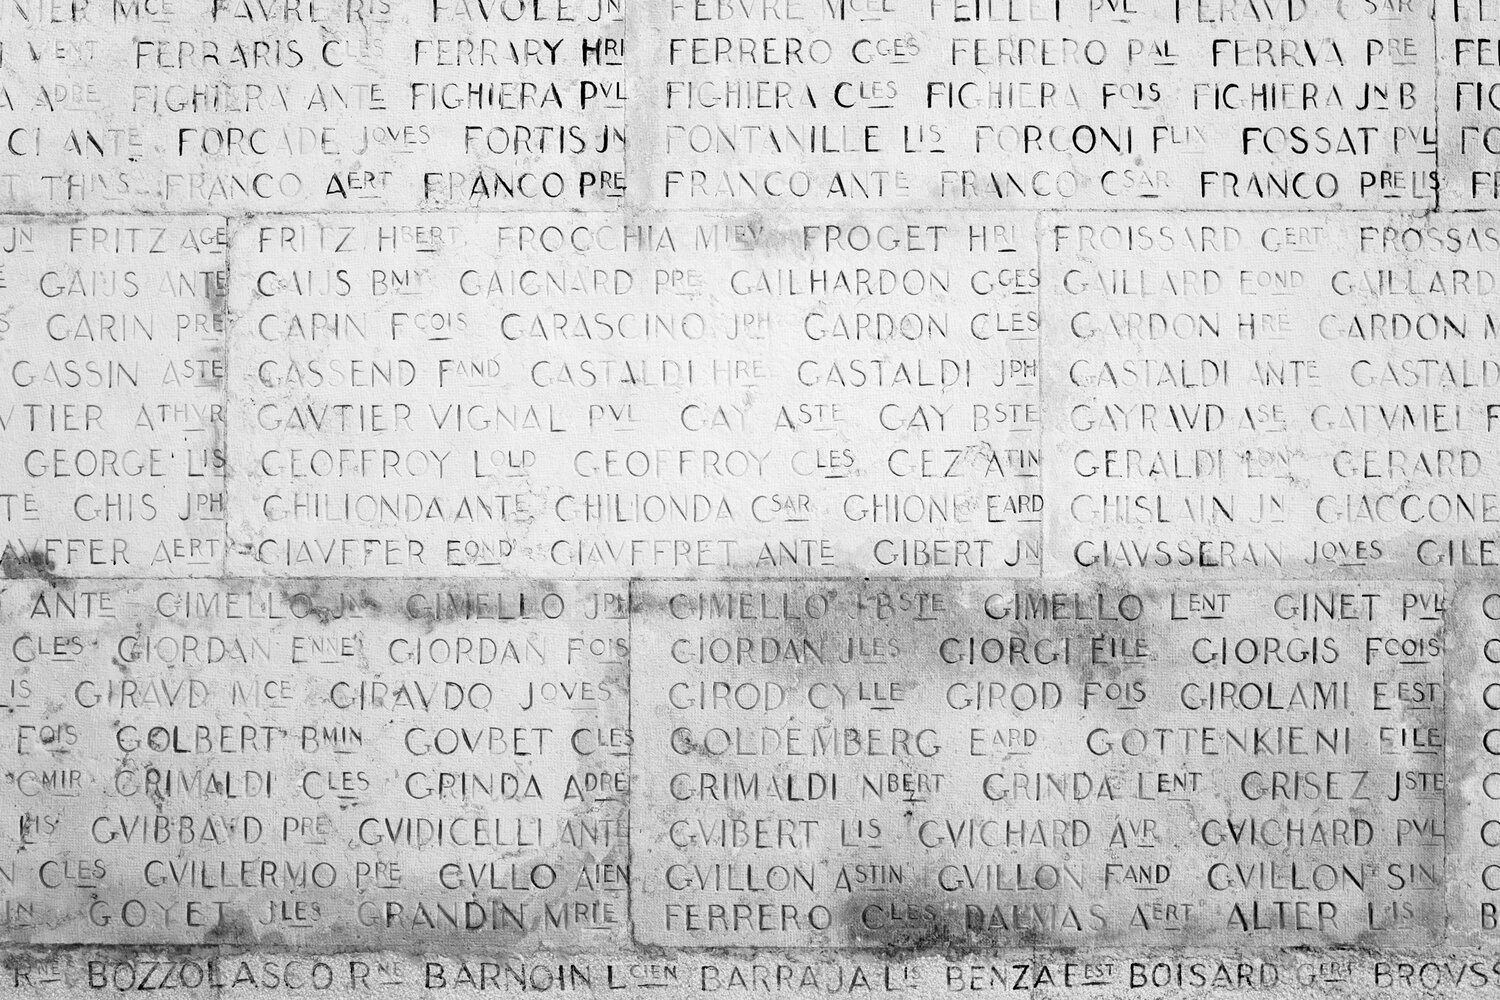 FAVRE RIS FAVOLE JN FEBVRE MCEL FEILLET PVL FERAVD CSAR
FERRARIS CLES FERRARY HRI FERRERO CGES FERRERO PAL FERRVA PRE
ADRE FIGHIERA ANTE FIGHIERA PVL FIGHIERA CLES FIGHIERA FOIS FIGHIERA JN B
CI ANTE FORCADE JOVES FORTIS JN FONTANILLE LIS FORCONI FLIX FOSSAT PVL
FRANCO AERT FRANCO PRE FRANCO ANTE FRANCO CSAR FRANCO PRE LIS
JN FRITZ AGE FRITZ HBERT FROCCHIA FROGET HRI FROISSARD GERT FROSSAS
GAIJS ANTE GAIJS BMY GAIGNARD PPE GAILHARDON GGES GAILLARD EOND GAILLARD
GARIN PRE GARIN FCOIS GARASCINO JPH GARDON CLES GARDON HRE GARDON
GASSIN ASTE GASSEND FAND GASTALDI HRE GASTALDI JPH GASTALDI ANTE GASTALD
VTIER ATHVR GAVTIER VIGNAL PVL GAY ASTE GAY BSTE GAYRAVD ASE GATVMEL F
GEORGE LIS GEOFFROY LOLD GEOFFROY CLES GEZ ATIN GERALDI GERARD
TE GHIS JPH GHILIONDA ANTE GHILIONDA CSAR GHIONE EARD GHISLAIN JN GIACCONE
AVFFER AERT GIAVFFER EOND GIAVFFRET ANTE GIBERT JN GIAVSSERAN JOVES GILE
ANTE GIMELLO JN GIMELLO JPH GIMELLO JBSTE GIMELLO LENT GINET PVL
CLES GIORDAN ENNE GIORDAN FOIS GIORDAN JLES GIORGI EILE GIORGIS FCOIS
IS GIRAVD MCE GIRAVDO JOVES GIROD CYLLE GIROD FOIS GIROLAMI EEST
FOIS GOLBERT BMIN GOVBET CLES GOLDEMBERG EARD GOTTENKIENI EILE
CMIR GRIMALDI CLES GRINDA ADRE GRIMALDI NBERT GRINDA LENT GRISEZ JSTE
LIS GVIBBAVD PRE GVIDICELLI ANTE GVIBERT LIS GVICHARD AVR GVICHARD PVL
N CLES GVILLERMO PRE GVLLO AIEN GVILLON ASTIN GVILLON FAND GVILLON SIN
JN GOYET JLES GRANDIN MRIE FERRERO CLES DALMAS AERT ALTER LIS
RNE BOZZOLASCO RNE BARNOIN LCIEN BARRAJA LIS BENZA EEST BOISARD GERT BROVSS